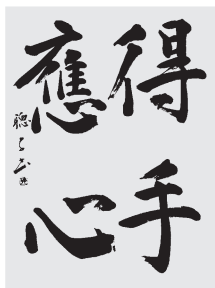 得手
應心